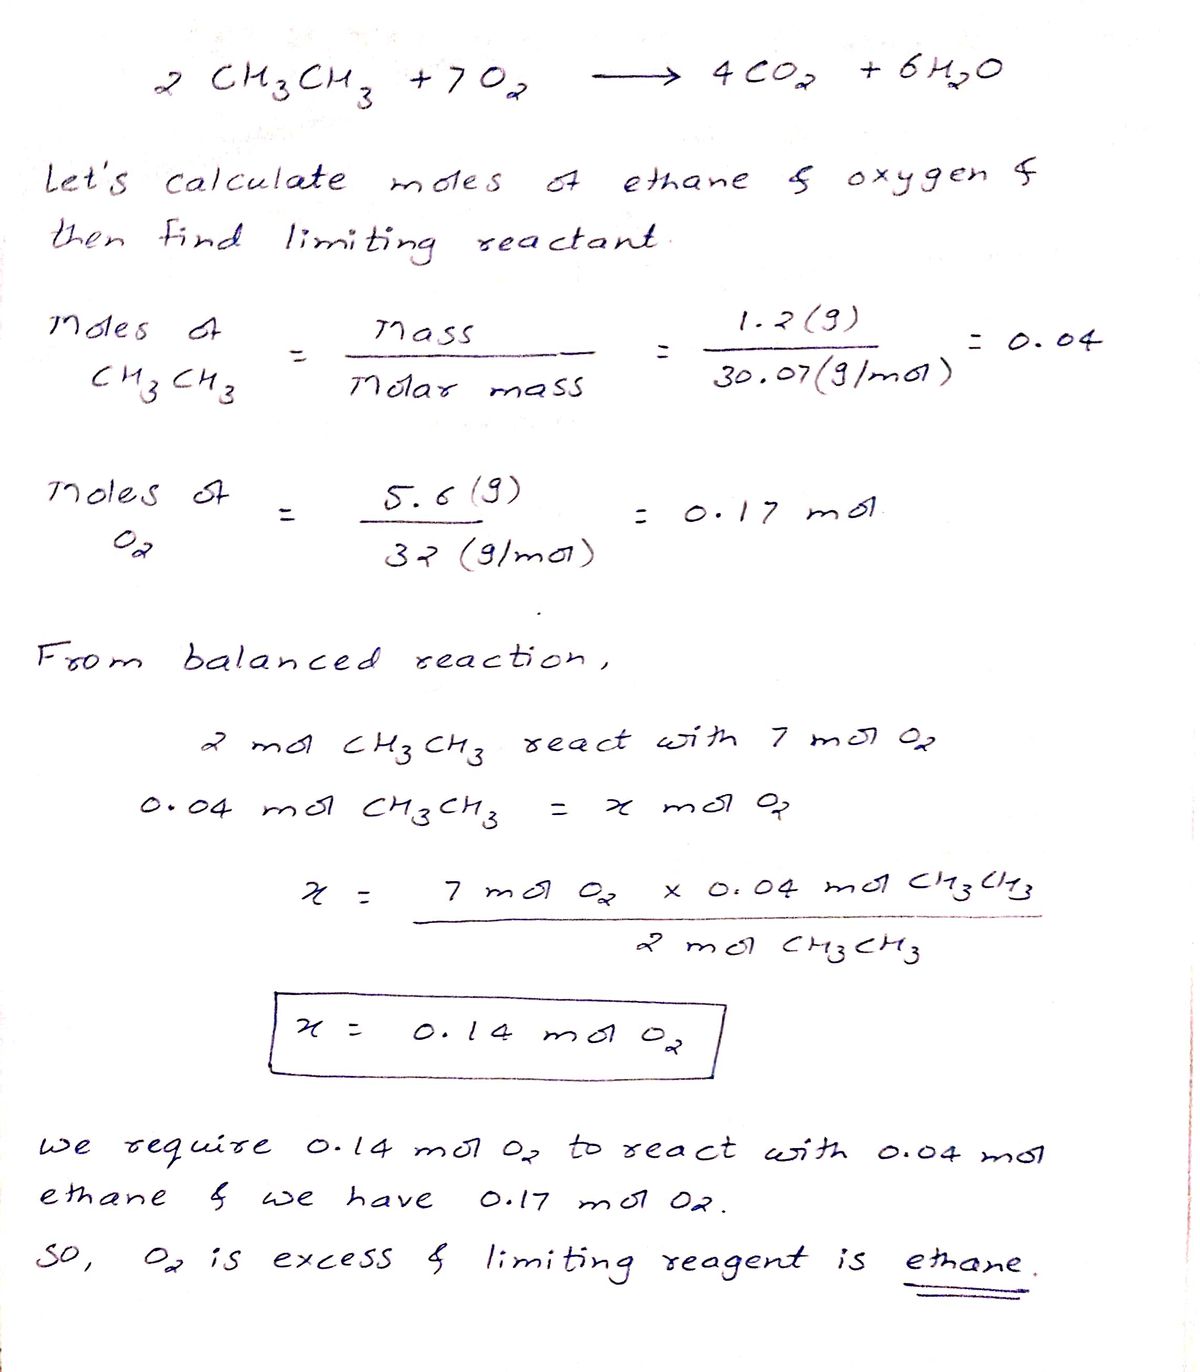 2 CH₃CH₃ + 7 O₂ ⟶ 4 CO₂ + 6 H₂O
Let's calculate moles of ethane & oxygen &
then find limiting reactant.
Moles of CH₃CH₃ = Mass / Molar mass = 1.2 (g) / 30.07 (g/mol) = 0.04
Moles of O₂ = 5.6 (g) / 32 (g/mol) = 0.17 mol.
From balanced reaction,
2 mol CH₃CH₃ react with 7 mol O₂
0.04 mol CH₃CH₃ = x mol O₂
x = 7 mol O₂ x 0.04 mol CH₃CH₃ / 2 mol CH₃CH₃
x = 0.14 mol O₂
we require 0.14 mol O₂ to react with 0.04 mol
ethane & we have 0.17 mol O₂.
So, O₂ is excess & limiting reagent is ethane.